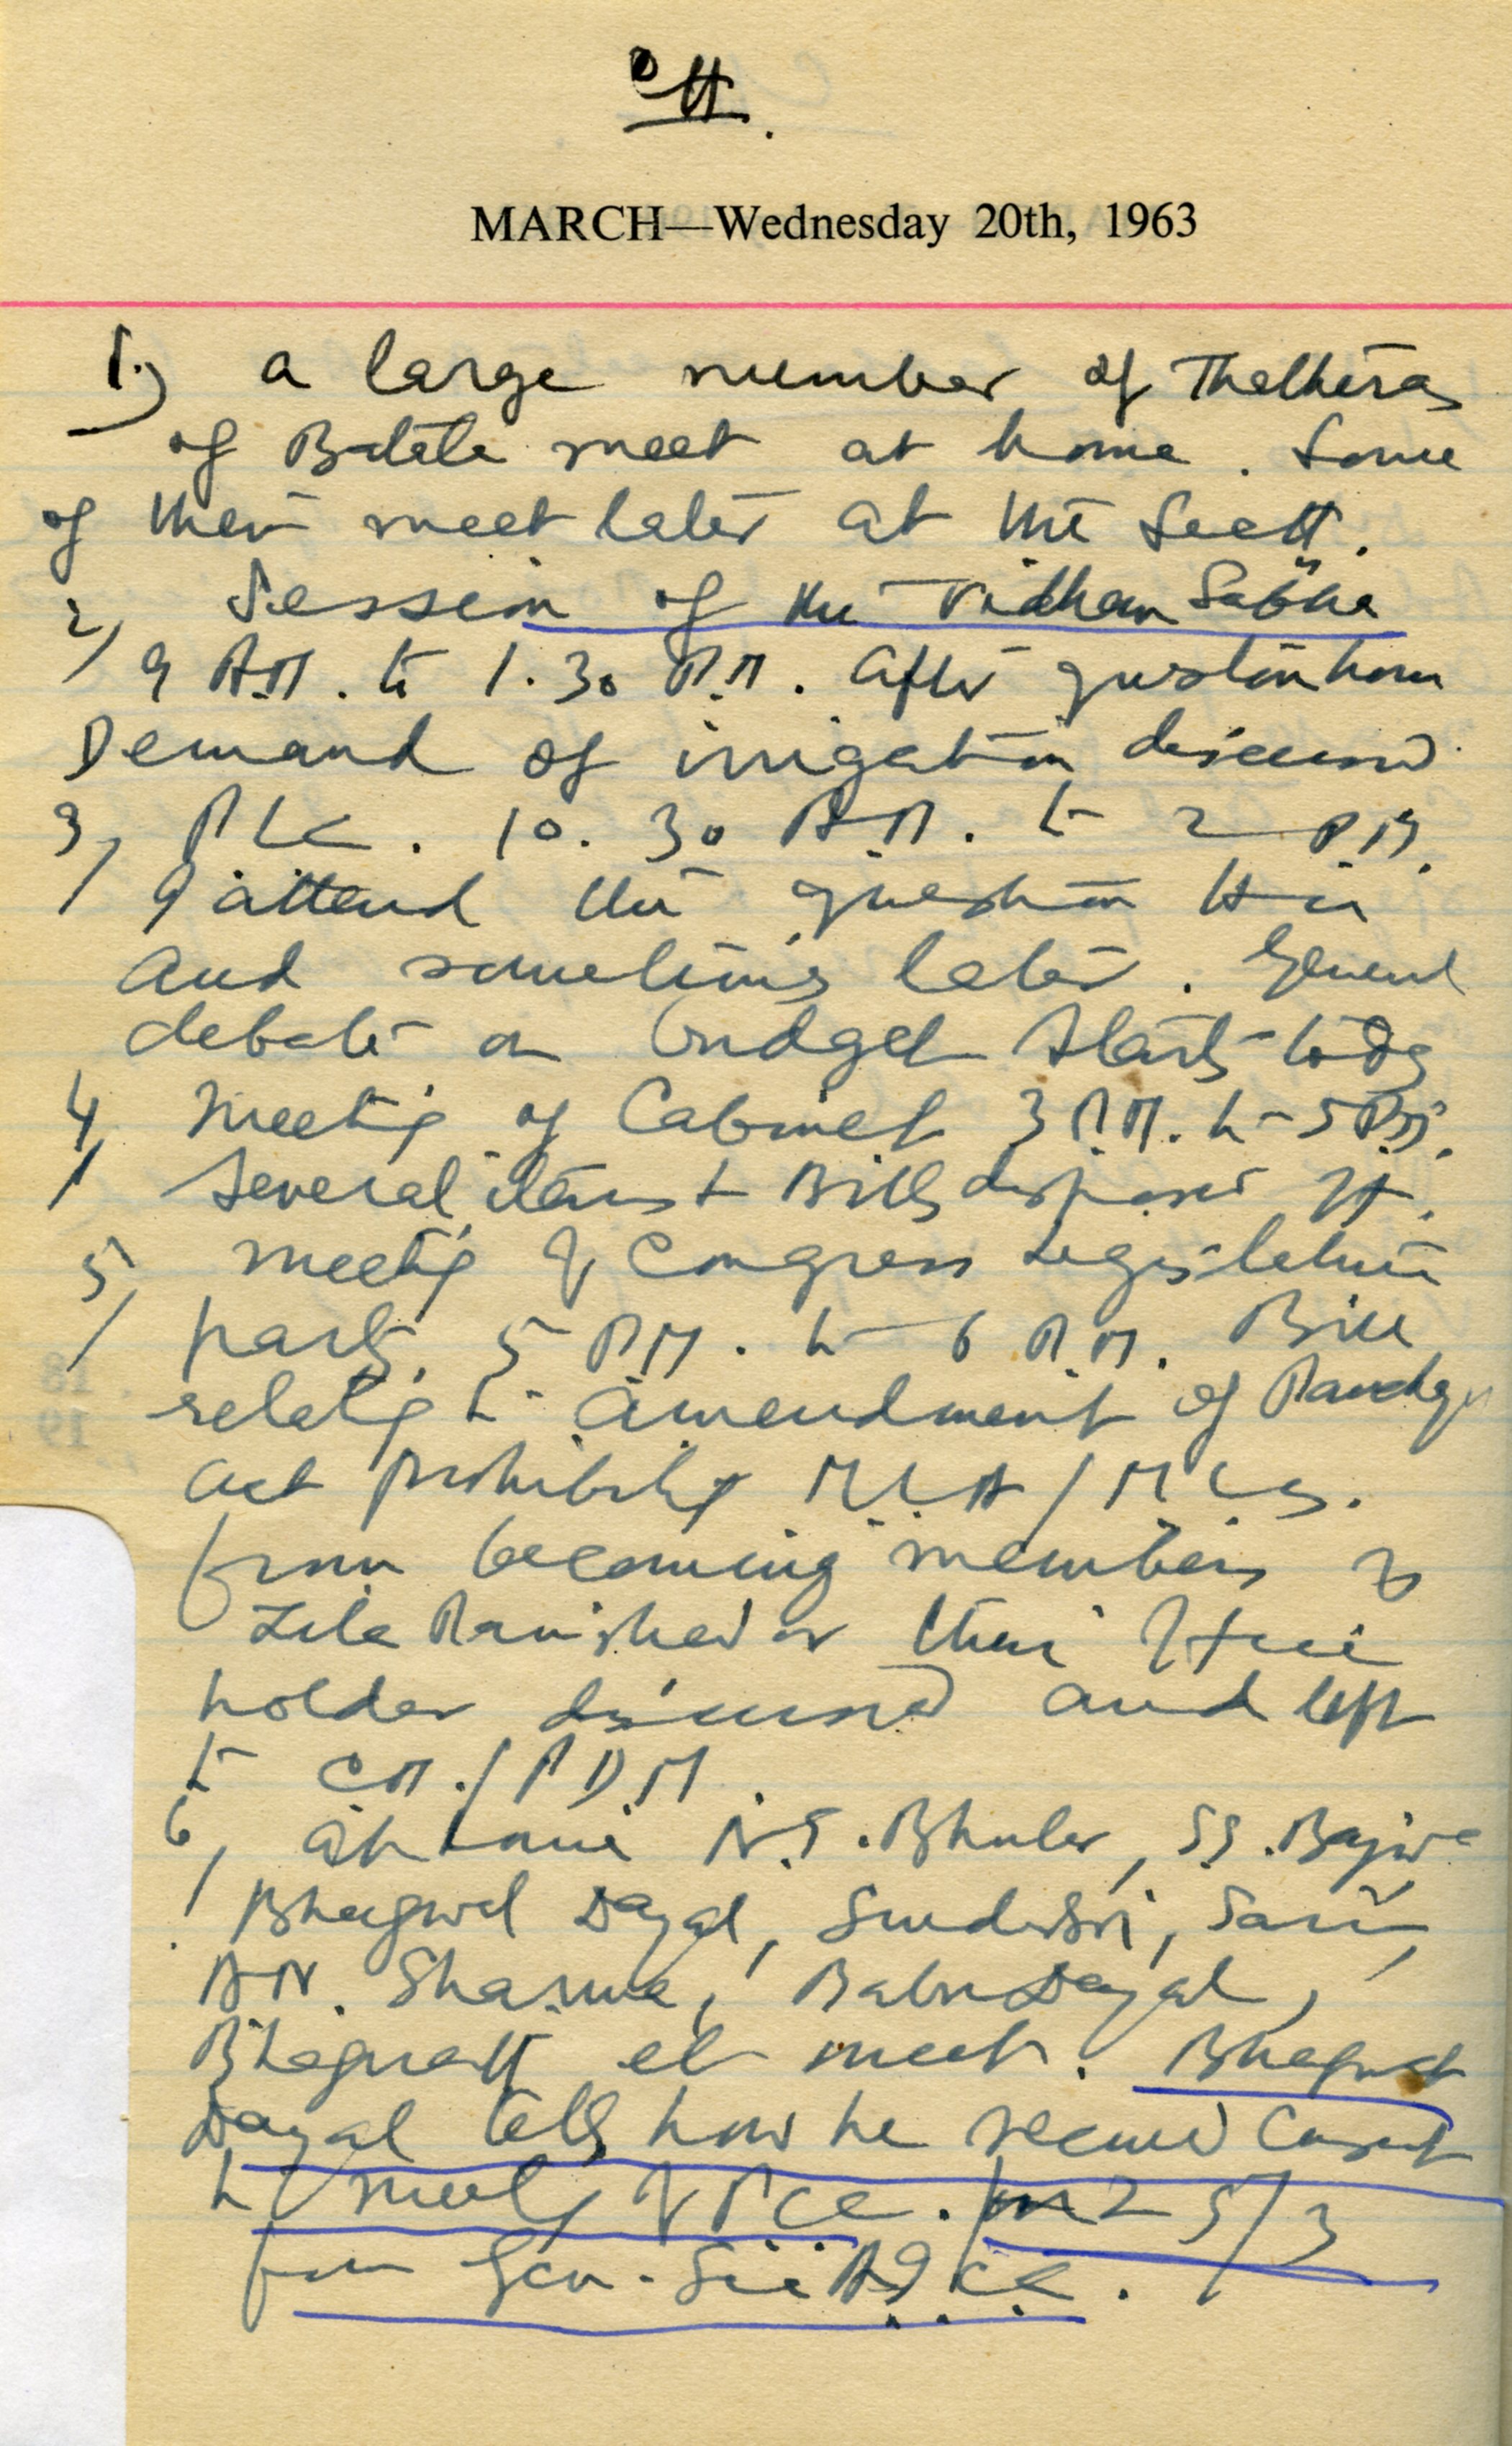 CH.
MARCH—Wednesday 20th, 1963
1.) A large number of Thathiras
of Batala meet at home. Some
of them meet later at the Sectt.
2/ Session of the Vidhan Sabha
9 A.M. to 1.30 P.M. After question hour
Demand of irrigation discussed
3/ P L C. 10.30 A.M. to 2 P.M.
I attend the question Hour
and sometimes later. General
debate on budget starts today
4/ Meeting of Cabinet 3 P.M. to 5 P.M.
Several items & Bills disposed off.
5/ Meeting of Congress Legislature
party. 5 P.M. to 6 P.M. Bill
relating to amendment of Panchayat
act prohibiting M.L.A/M.L.C.s.
from becoming members of
Zila Parishad or their office
holder discussed and left
to CM./PDM.
6/ At home N.S. Bhuler, S.S. Bajwa
Bhagwat Dayal, Sunder Sri, Sarin,
A.N. Sharma, Babu Dayal,
Bhagirath et meet. Bhagwat
Dayal tells how he secured Consent
to meeting of PCC. on 25/3
from Gen. Sec A.I.C.C.